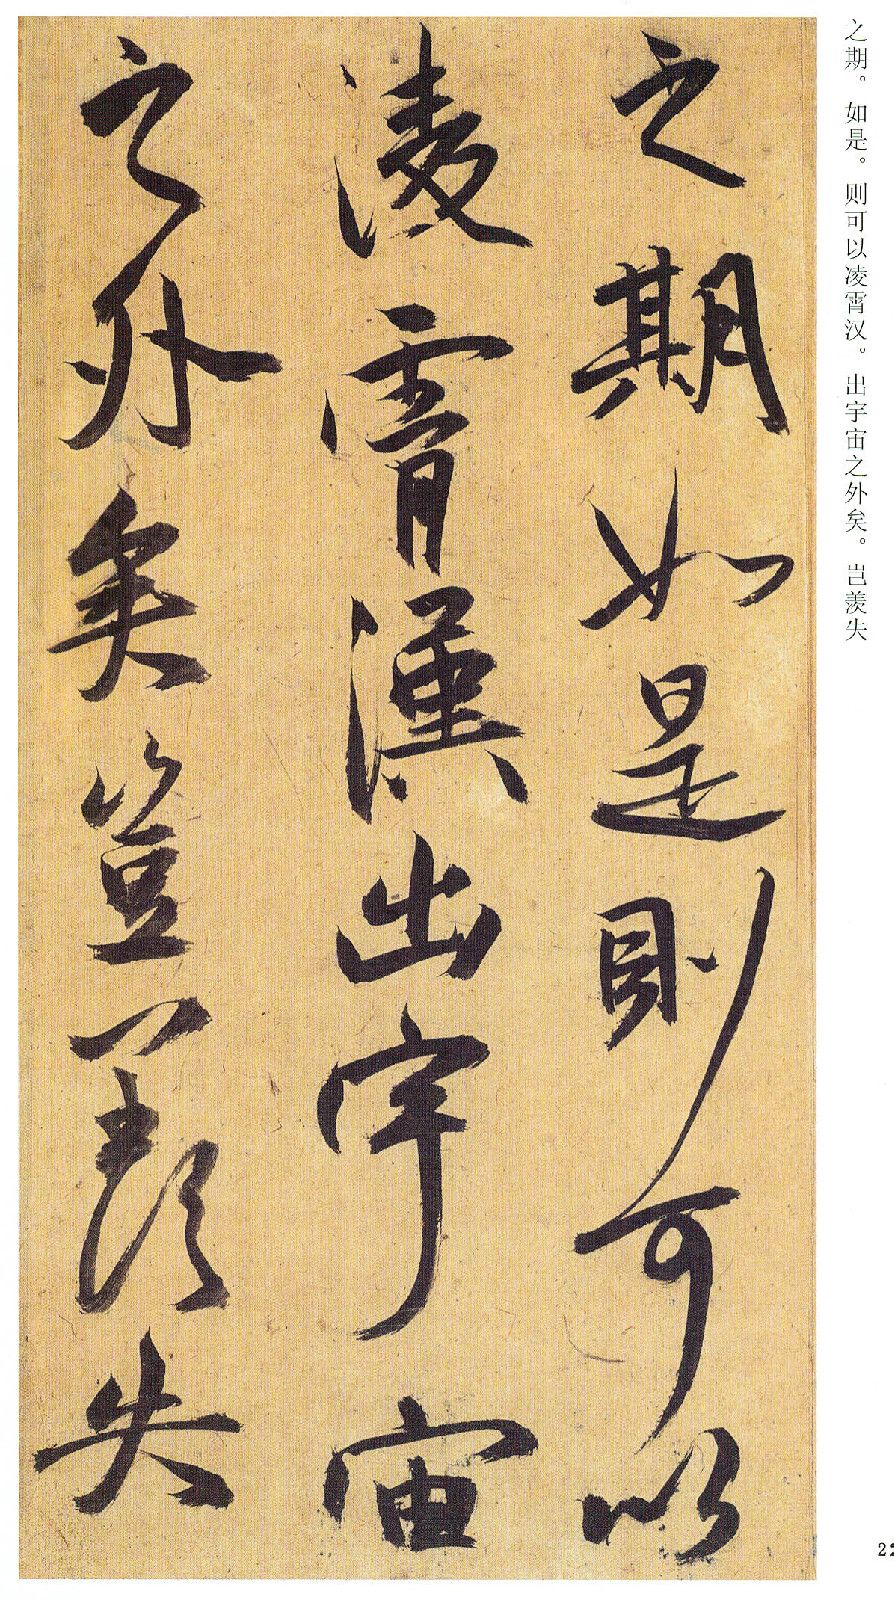 之期。如是。则可以凌霄汉。出宇宙之外矣。岂羡失
之期如是則可以
凌霄漢出宇宙
之外矣豈羨失
22